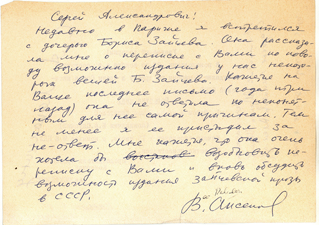 Сергей Александрович!
Недавно в Париже я встретился
с дочерью Бориса Зайцева. Она рассказа-
ла мне о переписке с Вами по пово-
ду возможного издания у нас некото-
рых вещей Б. Зайцева. Кажется на
Ваше последнее письмо (года
назад) она не ответила по непонят-
ным для нее самой причинам. Тем
не менее я ее пристыдил за
не-ответ. Мне кажется, что она очень
хотела бы возобновить пе-
реписку с Вами и вновь обсудить
возможности издания зайцевской прозы
в СССР.
В. Аксенов